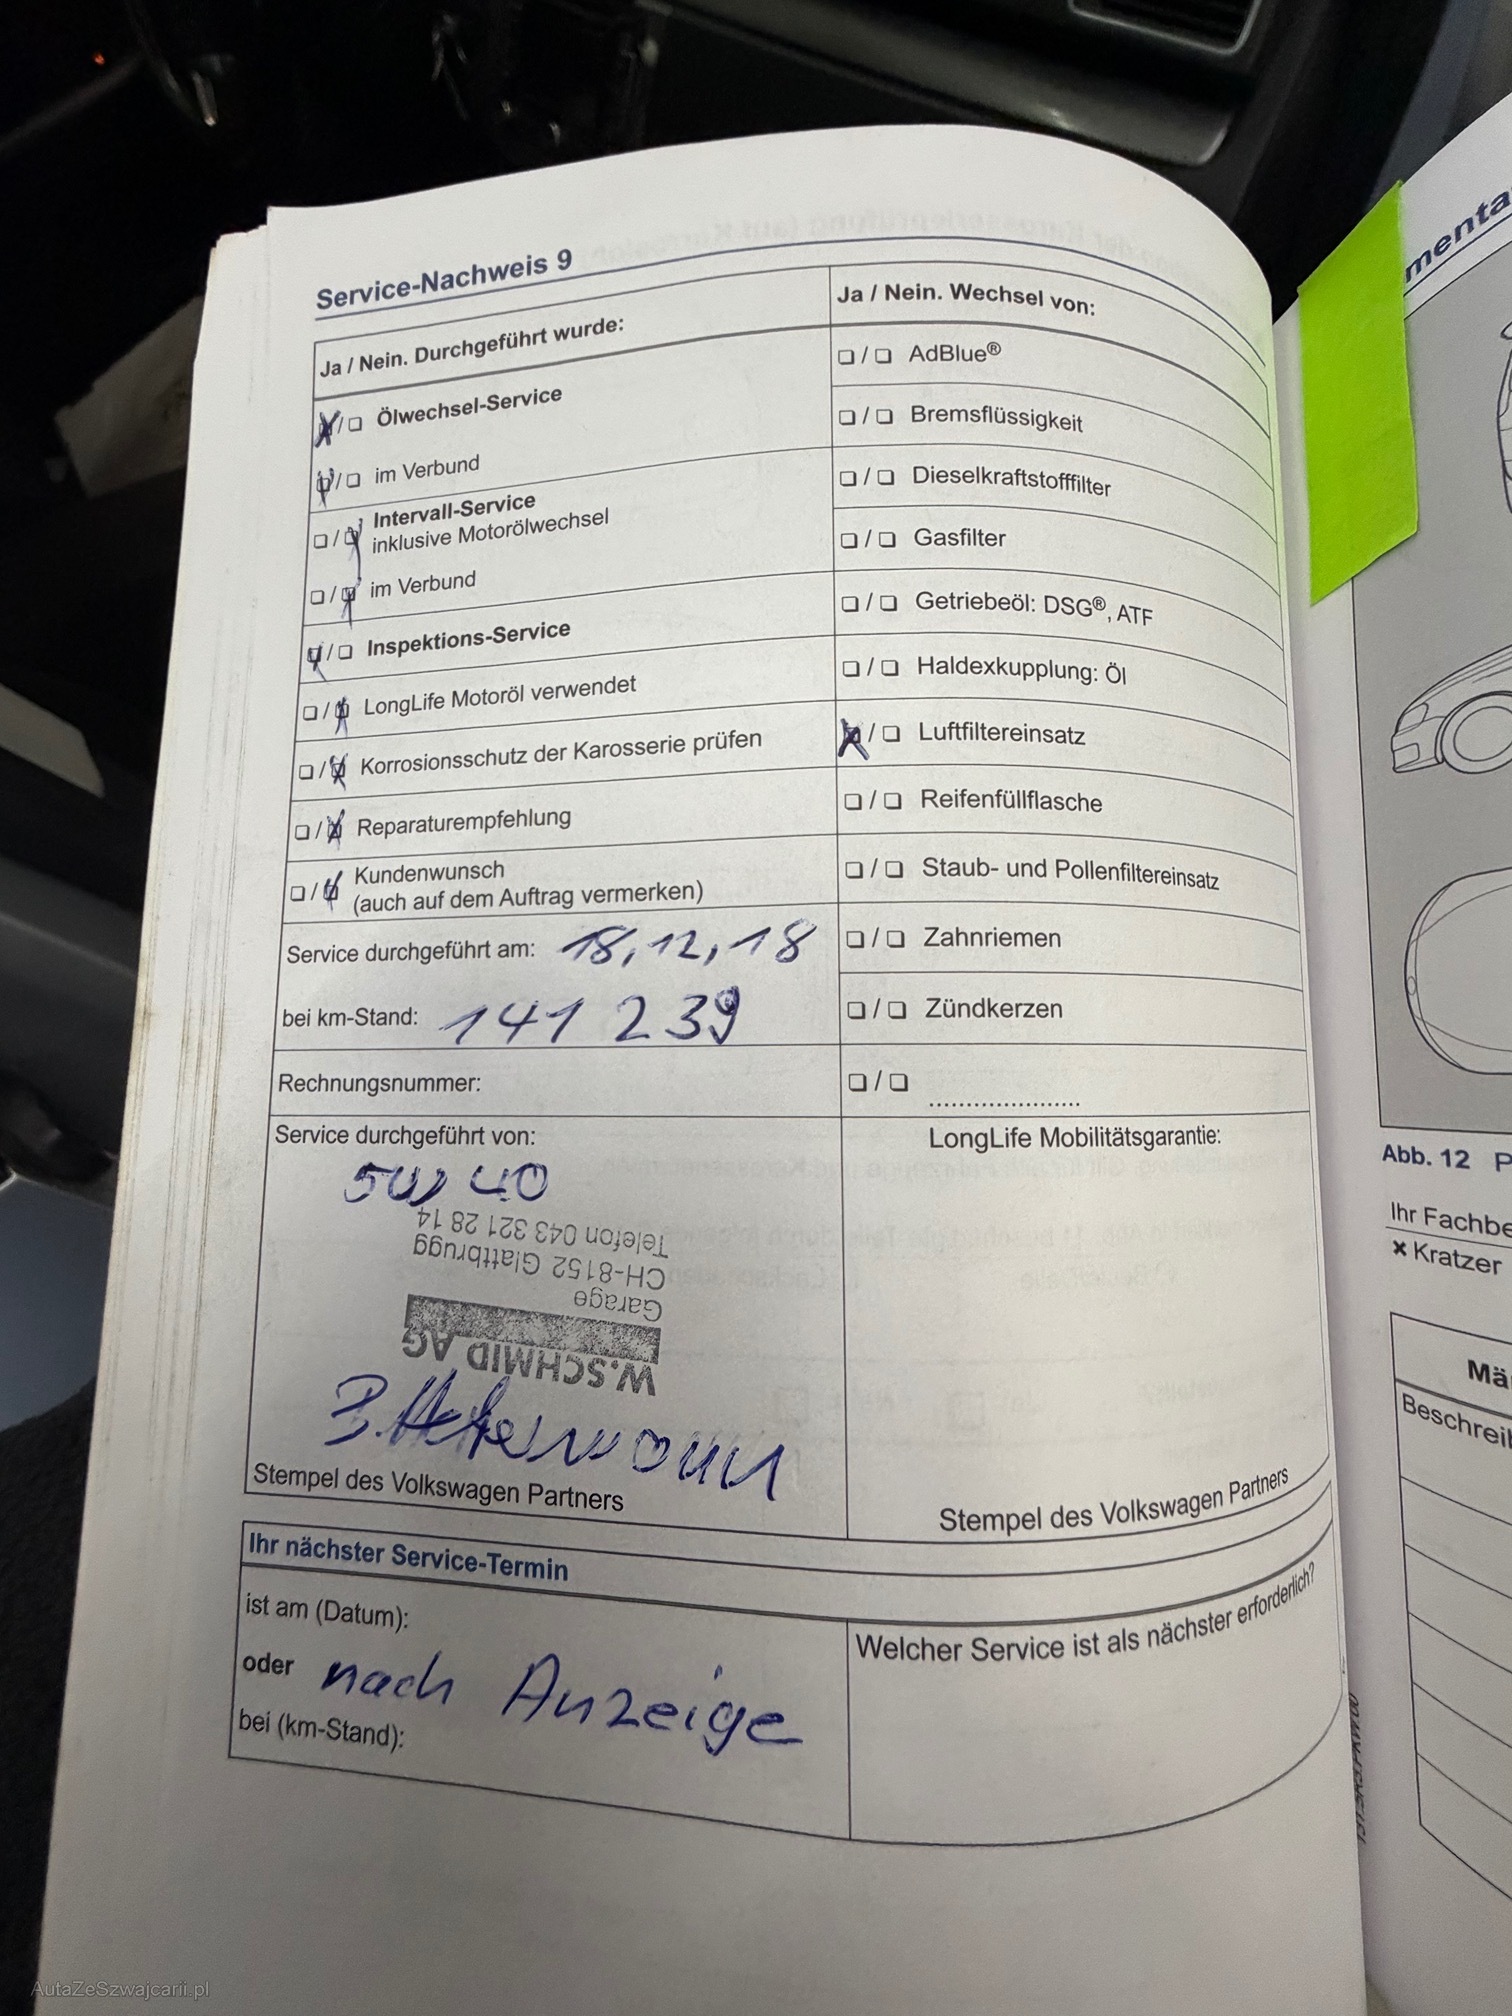 Service-Nachweis 9
Ja / Nein. Durchgeführt wurde:
Ölwechsel-Service
im Verbund
Intervall-Service
inklusive Motorölwechsel
im Verbund
Inspektions-Service
LongLife Motoröl verwendet
Korrosionsschutz der Karosserie prüfen
Reparaturempfehlung
Kundenwunsch
(auch auf dem Auftrag vermerken)
Service durchgeführt am: 18,12,18
bei km-Stand: 141 239
Rechnungsnummer:
Service durchgeführt von:
5W 40
W.SCHMID AG
Garage
CH-8152 Glattbrugg
Telefon 043 321 28 14
Stempel des Volkswagen Partners
Ja / Nein. Wechsel von:
AdBlue®
Bremsflüssigkeit
Dieselkraftstofffilter
Gasfilter
Getriebeöl: DSG®, ATF
Haldexkupplung: Öl
Luftfiltereinsatz
Reifenfüllflasche
Staub- und Pollenfiltereinsatz
Zahnriemen
Zündkerzen
LongLife Mobilitätsgarantie:
Stempel des Volkswagen Partners
Ihr nächster Service-Termin
ist am (Datum):
oder nach Anzeige
bei (km-Stand):
Welcher Service ist als nächster erforderlich?
menta
Abb. 12 P
Ihr Fachbe
× Kratzer
Mä
Beschreib
AutaZeSzwajcarii.pl